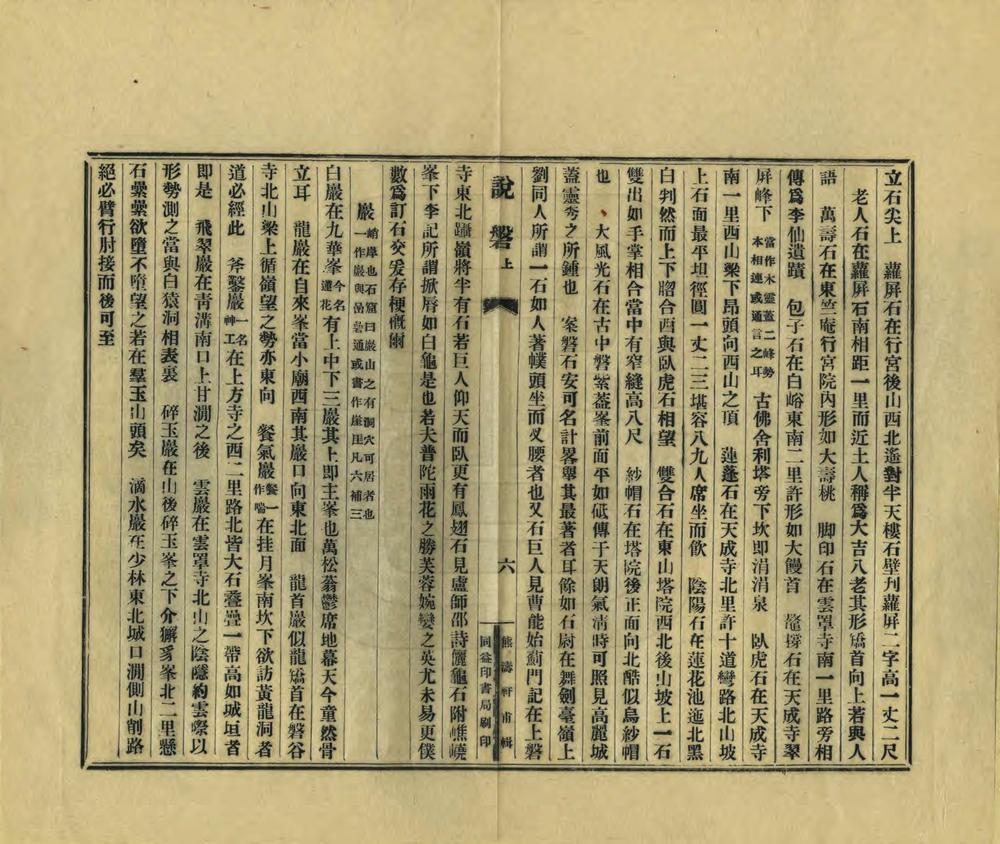 立石尖上　蘿屏石在行宮後山西北遙對半天樓石壁刋蘿屏二字高一丈二尺
老人石在蘿屏石南相距一里而近土人稱爲大吉八老其形矯首向上若與人
語　萬壽石在東竺庵行宮院內形如大壽桃　脚印石在雲罩寺南一里路旁相
傳爲李仙遺蹟　包子石在白峪東南二里許形如大饅首　石在天成寺翠
屏峰下當作木靈蓋二峰勢本相連或通言之耳　古佛舍利塔旁下坎即涓涓泉　臥虎石在天成寺
南一里西山梁下昂頭向西山之頂　蓮蓬石在天成寺北里許十道彎路北山坡
上石面最平坦徑圓一丈二三堪容八九人席坐而飲　陰陽石在蓮花池迤北黑
白判然而上下𦛨合酉與臥虎石相望　雙合石在東山塔院西北後山坡上一石
雙出如手掌相合當中有窄縫高八尺　紗帽石在塔院後正面向北酷似烏紗帽
也　大風光石在古中磐紫蓋峯前面平如砥傳于天朗氣清時可照見高麗城
蓋靈秀之所鍾也　案磐石安可名計畧舉其最著者耳餘如石尉在舞劍臺嶺上
劉同人所謂一石如人著幞頭坐而叉腰者也又石巨人見曹能始薊門記在上磐
說磐上　六　熊濤軒甫輯　同益印書局刷印
寺東北躡嶺將半有石若巨人仰天而臥更有鳳翅石見盧師邵詩儷龜石附嶕嶢
峯下李記所謂掀脣如白龜是也若夫普陀雨花之勝芙蓉婉孌之英尤未易更僕
數爲訂石交爰存梗槪爾
巖峭厚也石窟曰巖山之有洞穴可居者也一作巖與嵒碞通或書作崖厓凡六補三
白巖在九華峯今名蓮花有上中下三巖其上即主峯也萬松蓊鬱席地幕天今童然骨
立耳　龍巖在自來峯當小廟西南其巖口向東北面　龍首巖似龍矯首在磐谷
寺北山梁上循嶺望之勢亦東向　餐氣巖餐一作喘在挂月峯南坎下欲訪黃龍洞者
道必經此　斧鑿巖一名神工在上方寺之西二里路北皆大石壘疊一帶高如城垣者
即是　飛翠巖在靑溝南口上甘澗之後　雲巖在雲罩寺北山之陰隱約雲際以
形勢測之當與白猿洞相表裏　碎玉巖在山後碎玉峯之下介獬豸峯北二里懸
石纍纍欲墮不墮望之若在羣玉山頭矣　滴水巖在少林東北城口澗側山削路
絕必臂行肘接而後可至